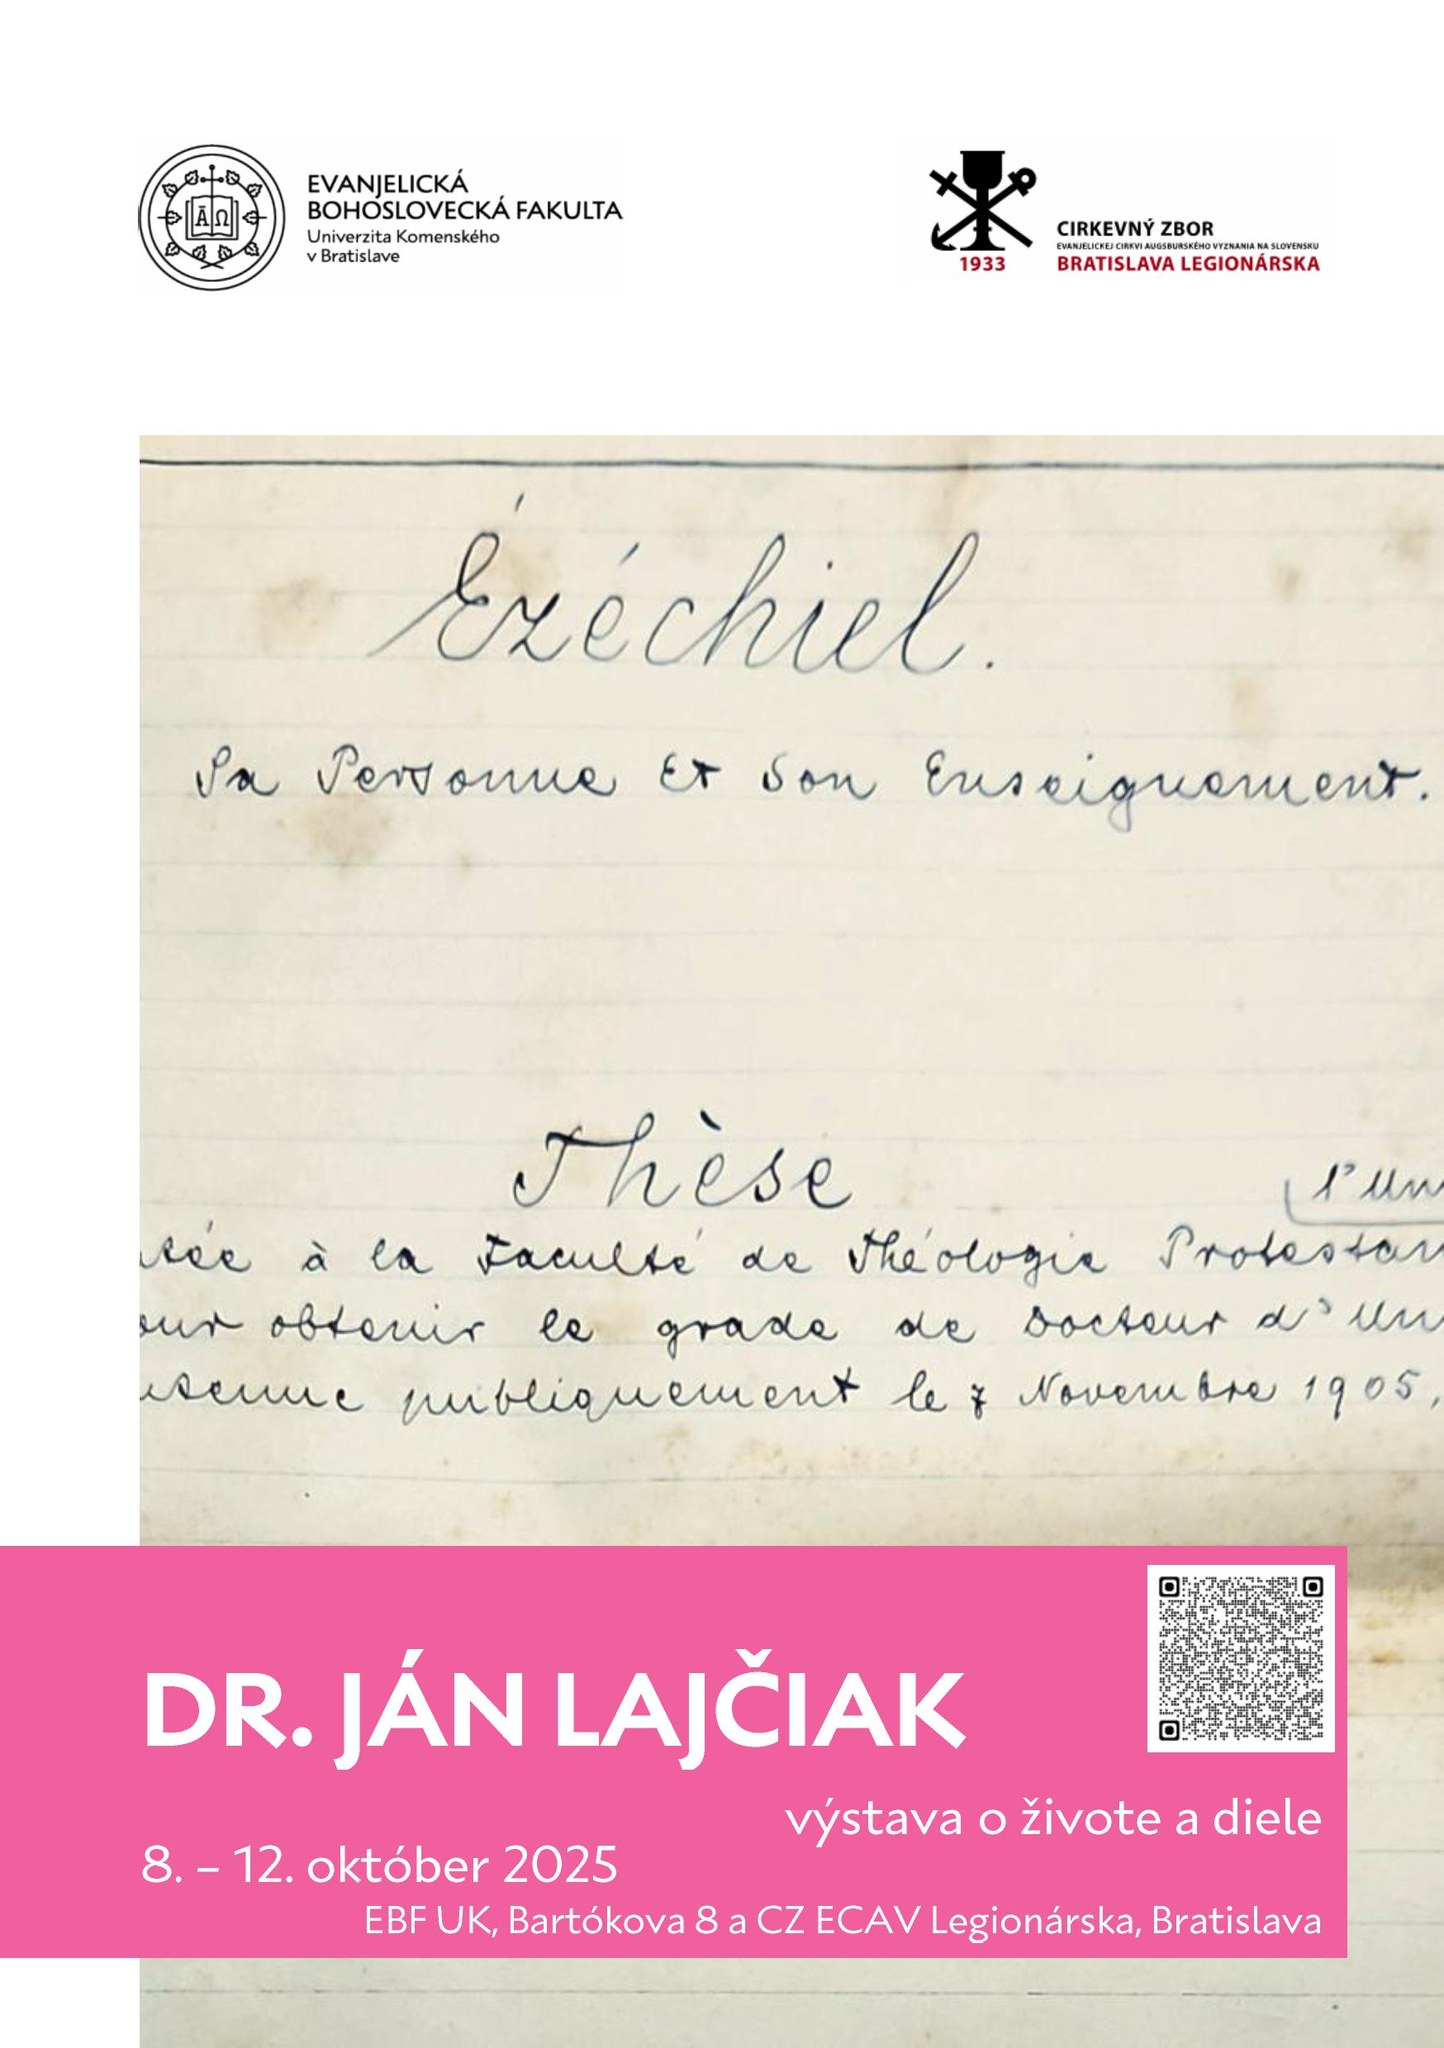 EVANJELICKÁ
BOHOSLOVECKÁ FAKULTA
Univerzita Komenského
v Bratislave
ĀΩ
CIRKEVNÝ ZBOR
EVANJELICKEJ CIRKVI AUGSBURSKÉHO VYZNANIA NA SLOVENSKU
1933 BRATISLAVA LEGIONÁRSKA
Ézéchiel.
Sa Personne Et Son Enseignement.
Thèse
l'Un
tée à la Faculté de Théologie Protestan
our obtenir le grade de Docteur d'Un
tenue publiquement le 7 Novembre 1905.
DR. JÁN LAJČIAK
výstava o živote a diele
8. – 12. október 2025
EBF UK, Bartókova 8 a CZ ECAV Legionárska, Bratislava